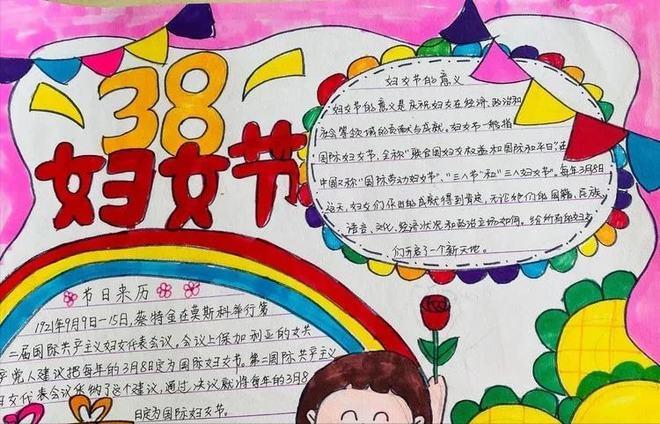 38
妇女节
妇女节的意义
妇女节的意义是庆祝妇女在经济、政治和
社会等领域的贡献与成就，妇女节一般指
国际妇女节，全称"联合国妇女权益和国际和平日"，在
中国又称"国际劳动妇女节"、"三八节"和"三八妇女节"。每年3月8日
这天，妇女们作出的贡献得到肯定，无论她们的国籍、民族、
语言、文化、经济状况和政治立场如何。给所有的妇女
们开启了一个新天地。
节日来历
1921年9月9日—15日，蔡特金在莫斯科举行第
二届国际共产主义妇女代表会议。会议上保加利亚的女共
产党人建议把每年的3月8日定为国际妇女节。第二国际共产主义
妇女代表会议采纳了这个建议，通过决议就将每年的3月8
日定为国际妇女节。